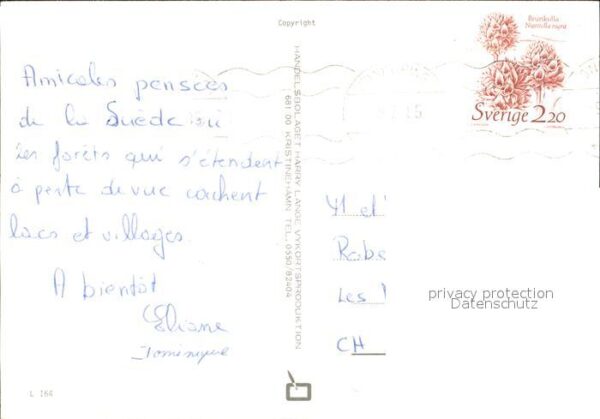 Copyright
Brunkulla
Nigritella nigra
Sverige 2.20
Amicales pensées
de la Suède où
les forêts qui s'étendent
à perte de vue cachent
lacs et villages.
A bientôt
Eliane
Dominique
HANDELSBOLAGET HARRY LANGE, VYKORTSPRODUKTION
681 00 KRISTINEHAMN TEL. 0550/82404
M et
Robe
Les
CH
privacy protection
Datenschutz
L 166